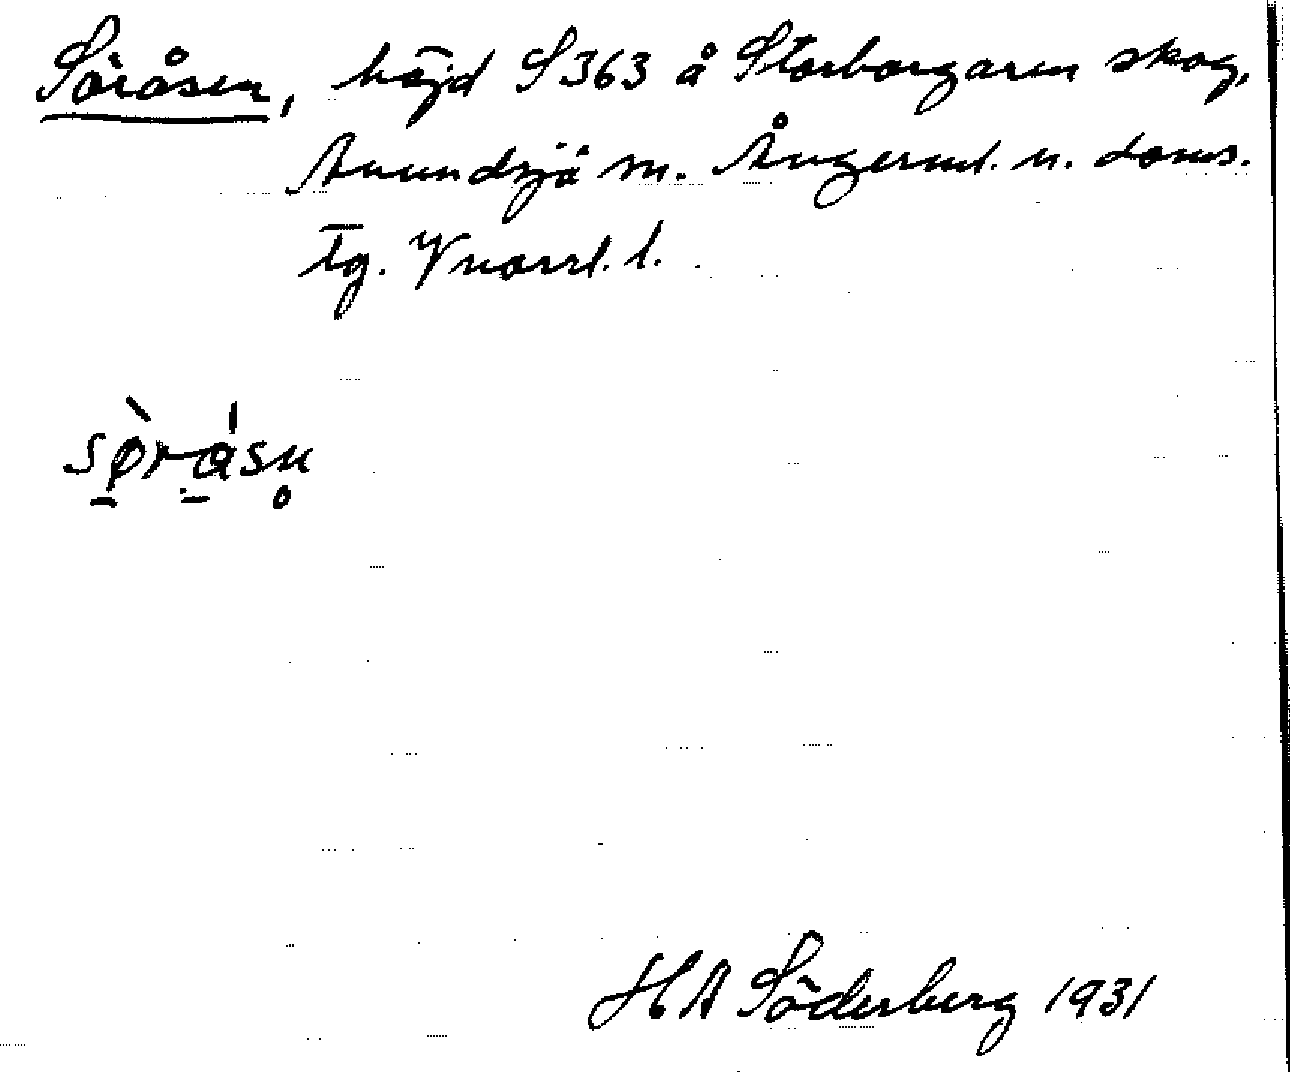 Söråsen, höjd S 363 å Storborgaren skog,
Anundsjö sn. Ångerml. n. doms.
tg. Vnorrl. l.
sø̀r-ásn̥
H A Söderberg 1931